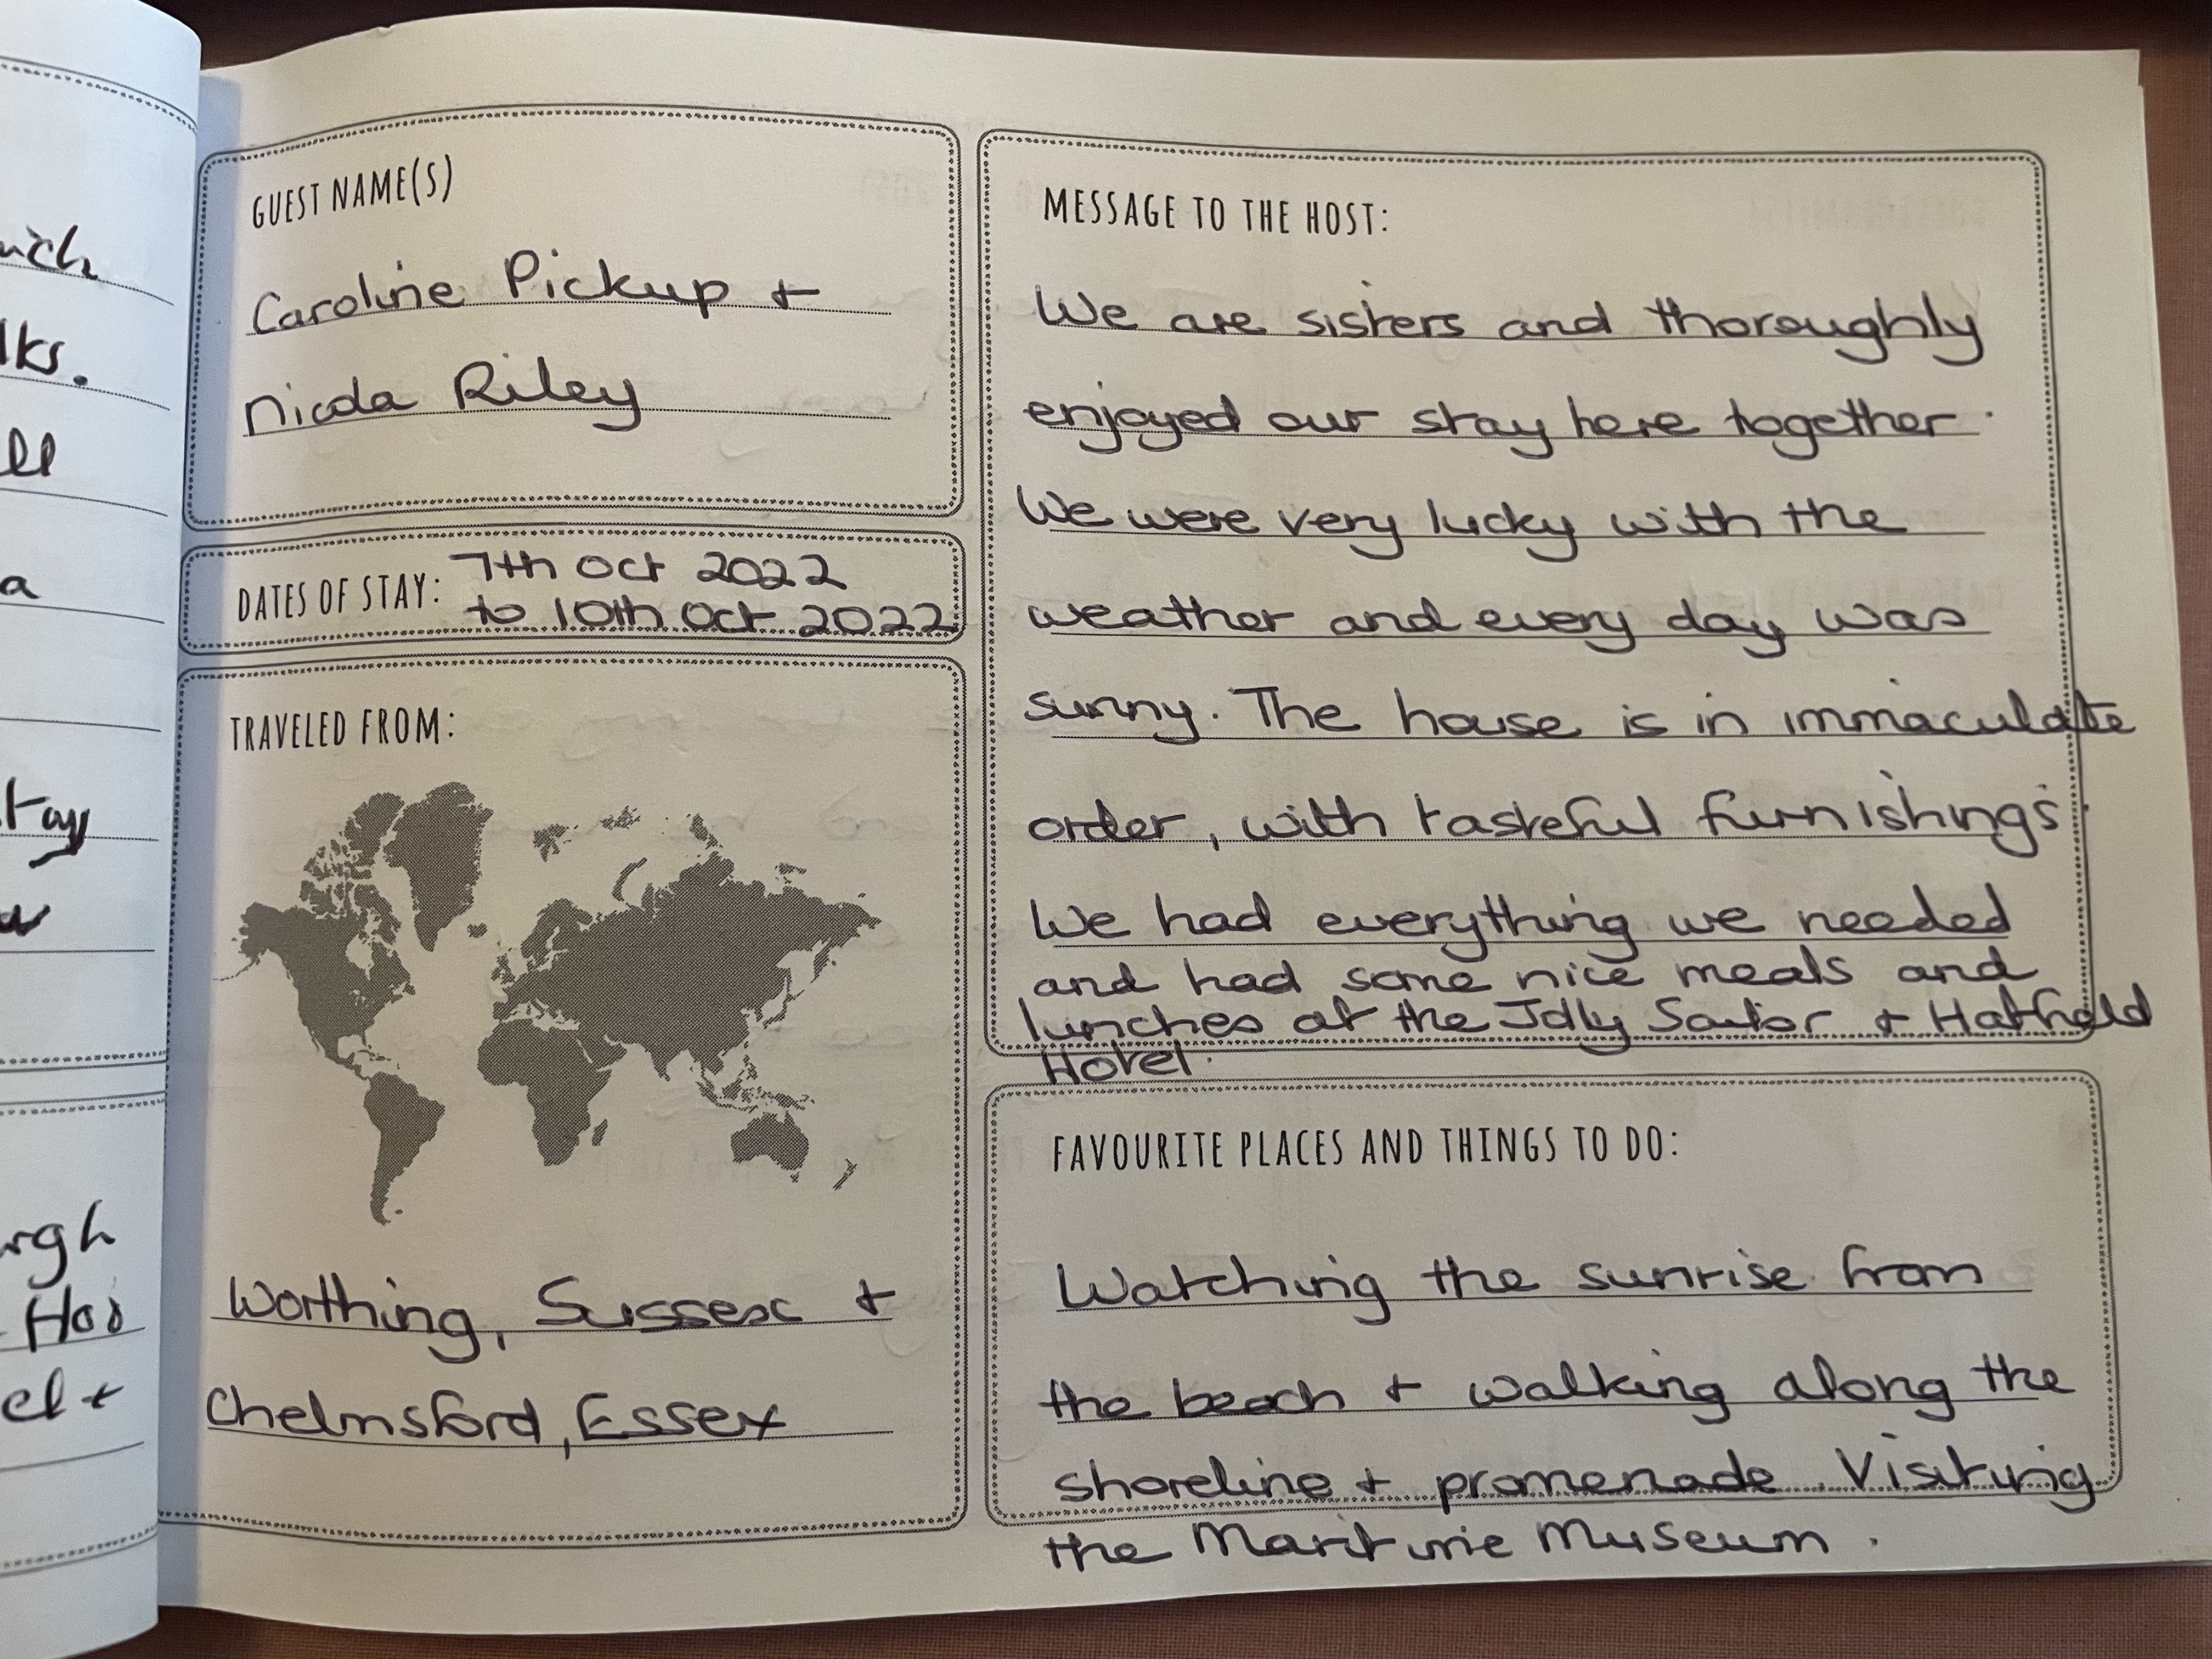 ich
lks.
ll
a
tay
w
rgh
Hoo
el +
GUEST NAME(S)
Caroline Pickup +
Nicola Riley
DATES OF STAY: 7th Oct 2022
to 10th Oct 2022
TRAVELED FROM:
Worthing, Sussex +
Chelmsford, Essex
MESSAGE TO THE HOST:
We are sisters and thoroughly
enjoyed our stay here together.
We were very lucky with the
weather and every day was
sunny. The house is in immaculate
order, with tasteful furnishings.
We had everything we needed
and had some nice meals and
lunches at the Jolly Sailor + Hatfield
Hotel.
FAVOURITE PLACES AND THINGS TO DO:
Watching the sunrise from
the beach + walking along the
shoreline + promenade. Visiting
the Maritime Museum.